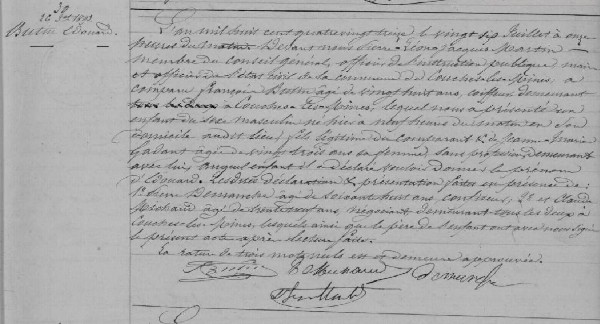 39
26 Juillet 1893
Butin Edouard
L'an mil huit cent quatre vingt treize le vingt six Juillet à onze
heures du matin Devant nous Pierre Jacques Martin
membre du Conseil général, officier de l'instruction publique, maire
et officier de l'état civil de la commune de Couches-les-Mines, a
comparu François Butin âgé de vingt huit ans, coiffeur, demeurant
à Couches-les-Mines, lequel nous a présenté un
enfant du sexe masculin né hier à neuf heures du matin en son
domicile audit lieu, fils légitime du comparant & de Jeanne Marie
âgée de vingt trois ans sa femme, sans profession demeurant
avec lui, auquel enfant il a déclaré vouloir donner le prénom
d'Edouard. Lesdites déclaration & présentation faites en présence de:
1º Pierre Demanche âgé de soixante huit ans, confiseur, 2º et Claude
Michaud âgé de ans, négociant demeurant tous les deux à
Couches-les-Mines, lesquels ainsi que le père de l'enfant ont avec nous signé
le présent acte après lecture faite.
La rature de trois mots nuls est et demeure approuvée.
Butin Michaud